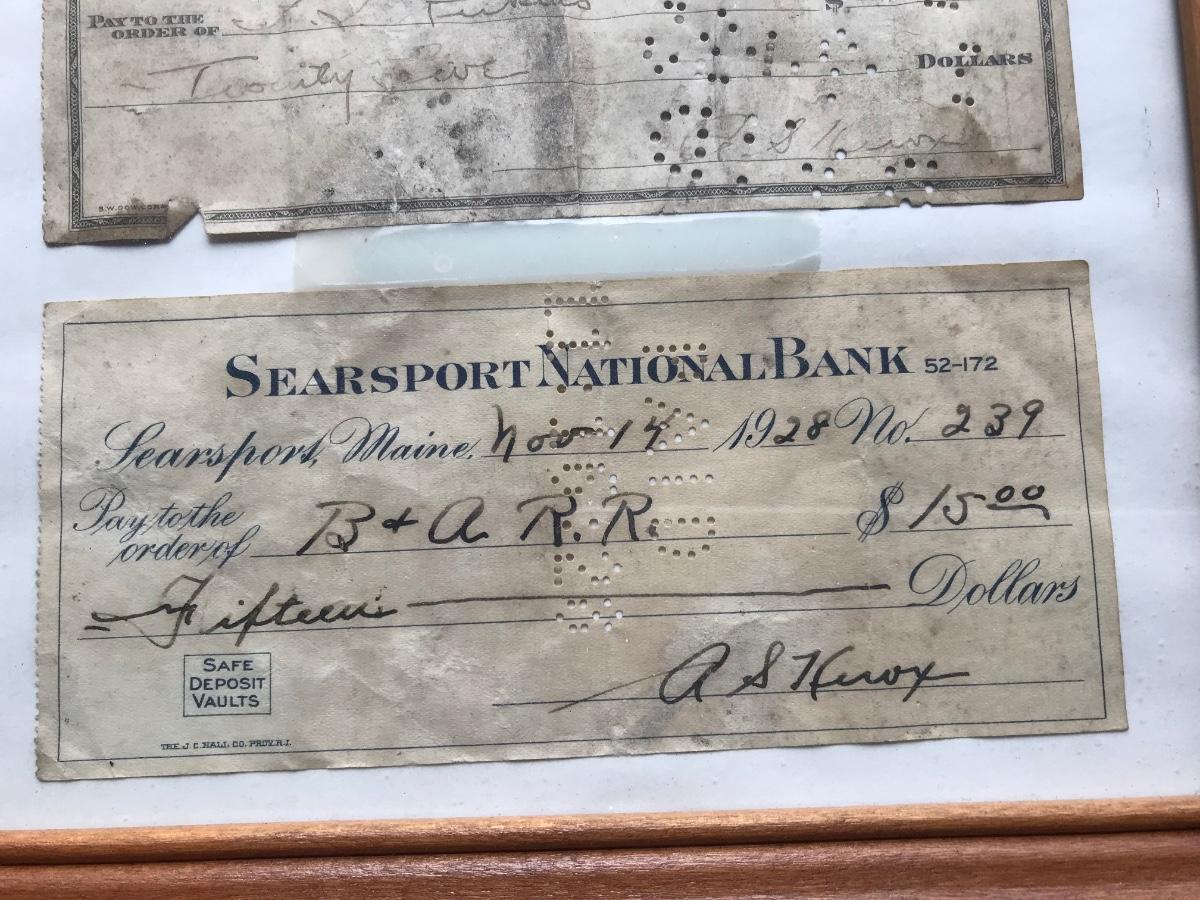 PAY TO THE
ORDER OF
$
Twenty five DOLLARS
A S Knox
SEARSPORT NATIONAL BANK 52-172
Searsport, Maine. Nov 14 1928 No. 239
Pay to the
order of B & A R. R. $ 15 00
Fifteen Dollars
SAFE
DEPOSIT
VAULTS
A S Knox
THE J. C. HALL CO. PROV. R.I.